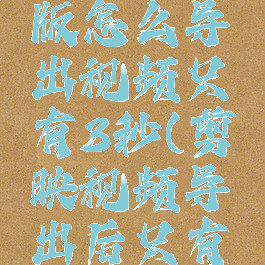 版怎么导
出视频只
有3秒(剪
映视频导
出后只有